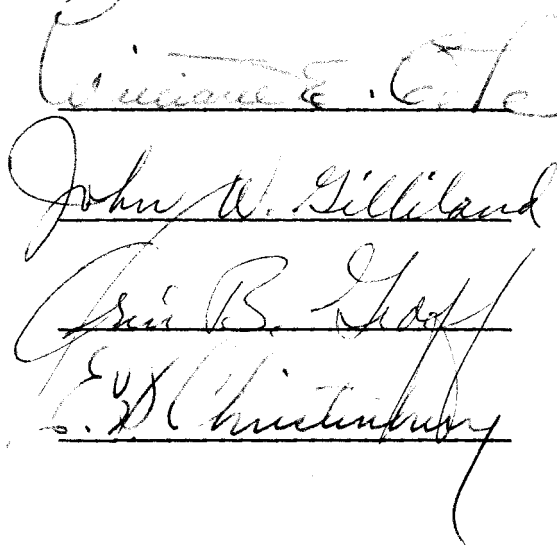 William E. Cole
John W. Gilliland
Orin B. Graff
E. D. Christenbury